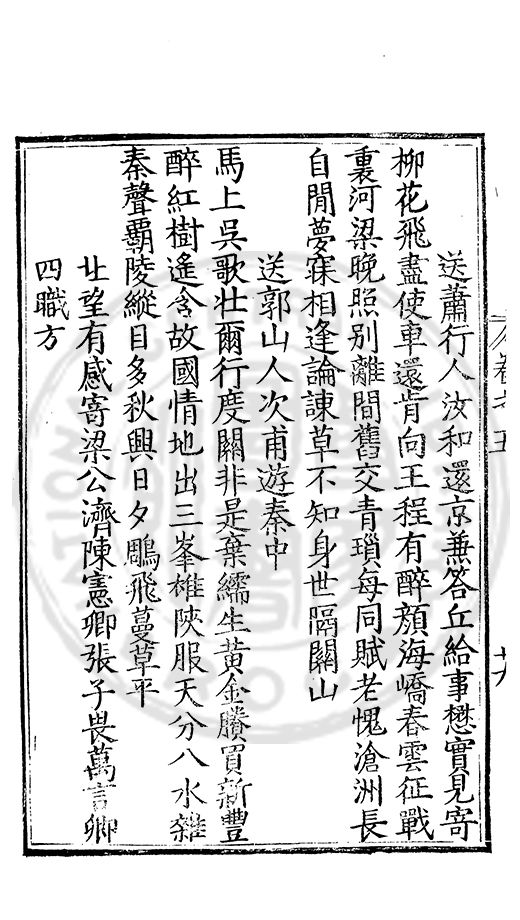 送蕭行人汝和還京兼答丘給事懋實見寄
柳花飛盡使車還肯向王程有醉顏海嶠春雲征戰
裏河梁晚照別離間舊交青瑣每同賦老愧滄洲長
自閒夢寐相逢論諫草不知身世隔關山
送郭山人次甫遊秦中
馬上吳歌壯爾行度關非是棄繻生黃金賸買新豐
醉紅樹遙含故國情地出三峯雄陜服天分八水雜
秦聲霸陵縱目多秋興日夕鵰飛蔓草平
北望有感寄梁公濟陳憲卿張子畏萬言卿
四職方